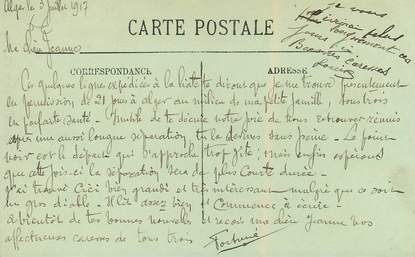 Alger le 3 Juillet 1917
Je vous
écrirai plus
longuement ces
jours
Bonnes caresses
CARTE POSTALE
Ma chère Jeanne
CORRESPONDANCE
ADRESSE
Ces quelques ligne expédiées à la hâte te diront que je me trouve présentement
en permission de 21 jours à alger au milieu de ma petite famille, tous trois
en parfaite santé. Inutile de te décrire notre joie de nous retrouver réunis
après une aussi longue séparation tu la devines sans peine. Le point
noir est le départ qui s'approche trop vite; mais enfin espérons
que cette fois-ci la séparation sera de plus courte durée.
J'ai trouvé bien grandi et très intéressant malgré que ce soit
un gros diable. Il lit assez bien et commence à écrire.
à bientôt de tes bonnes nouvelles et reçois ma chère Jeanne nos
affectueuses caresses de tous trois
Fortuné